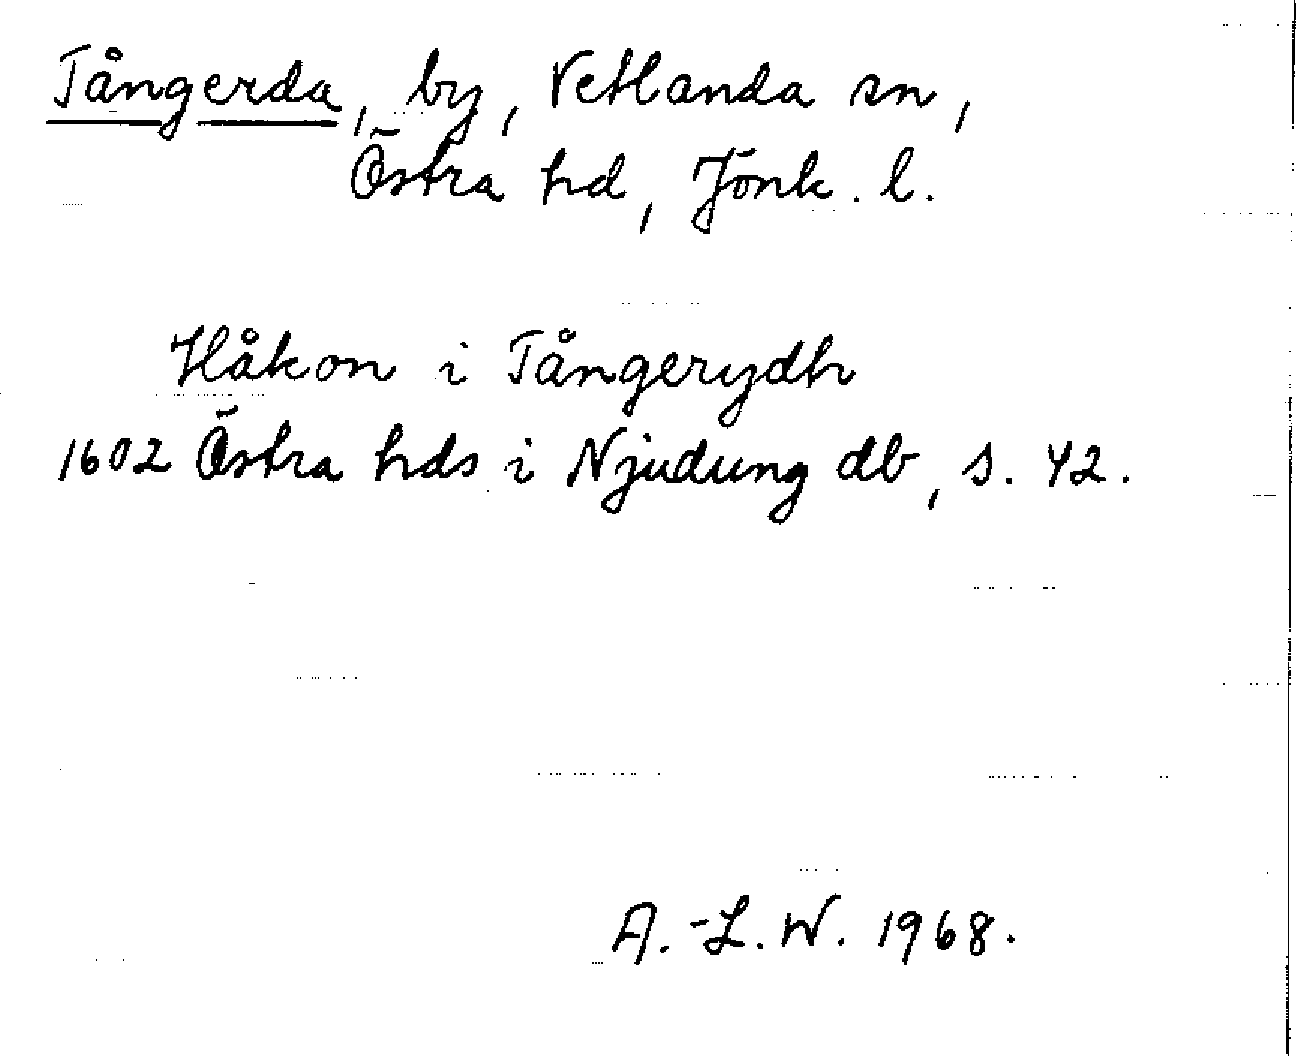 Tångerda, by, Vetlanda sn,
Östra hd, Jönk. l.
Håkon i Tångerydh
1602 Östra hds i Njudung db, s. 42.
A.-L. W. 1968.